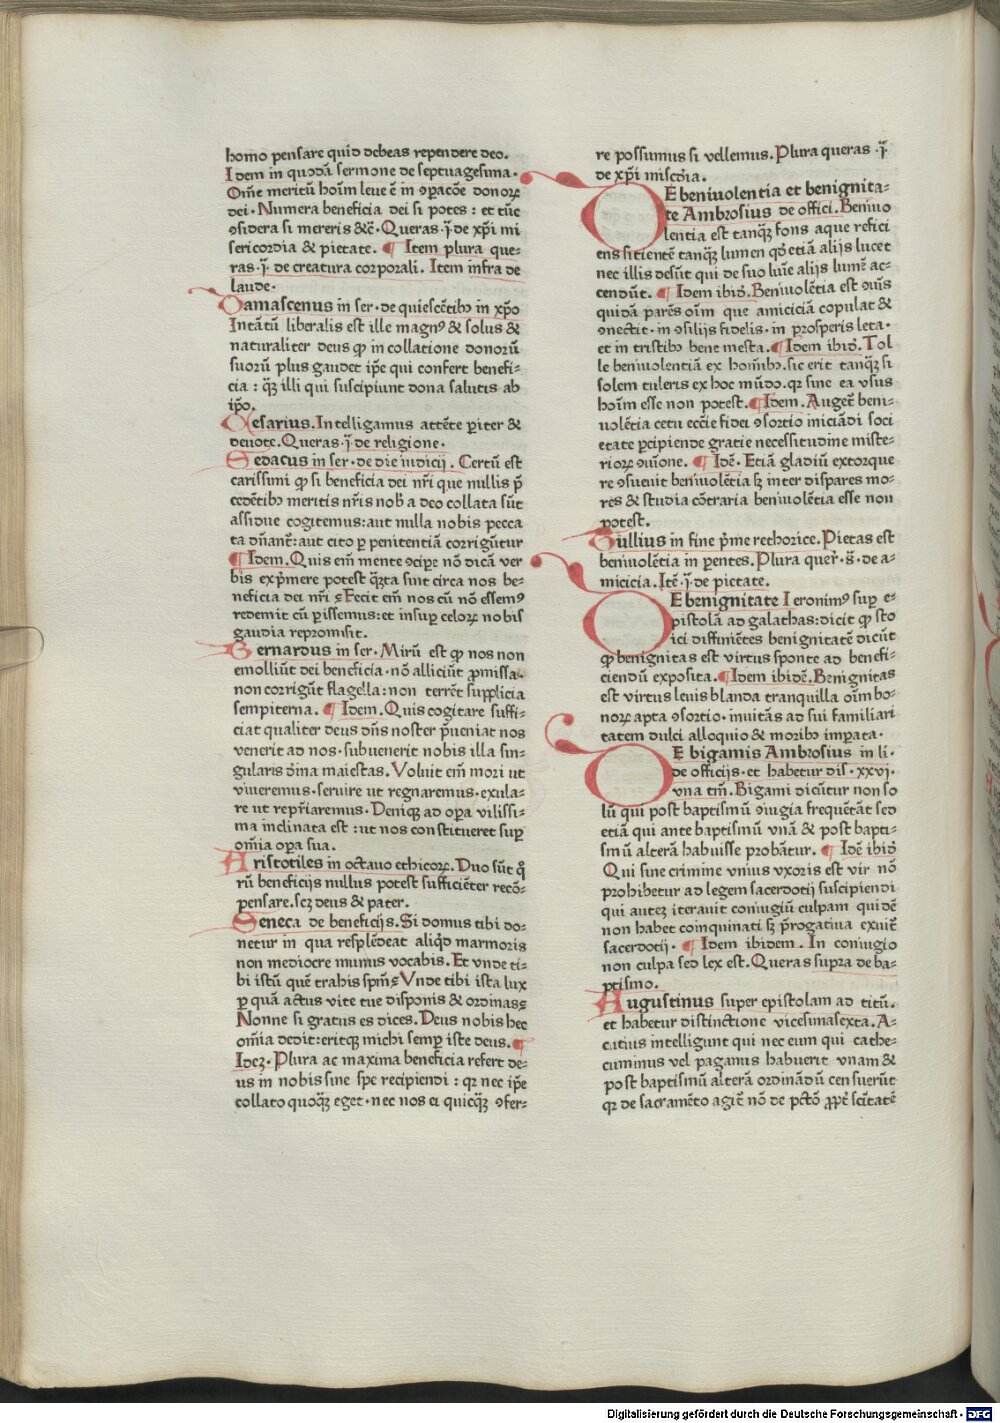 homo pensare quid debeas rependere deo.
Idem in quodā sermone de septuagesima.
Om̄e meritū hoīm leue ē in ꝯꝑacōe donoꝝ
dei. Numera beneficia dei si potes : et tūc
ꝯsidera si mereris &c̄. Queras .j̄. de xp̄i mi
sericordia & pietate. ¶ Item plura que-
ras .j̄. de creatura corporali. Item infra de
laude.
Damascenus in ser. de quiescētibꝫ in xp̄o
Intātū liberalis est ille magnꝰ & solus &
naturaliter deus ꝙ in collatione donorū
suorū plus gaudet ip̄e qui confert benefi-
cia : qꝫ illi qui suscipiunt dona salutis ab
ip̄o.
Cesarius. Intelligamus attēte ꝑiter &
deuote. Queras .j̄. de religione.
Sedacus in ser. de die iudicij. Certū est
carissimi ꝙ si beneficia dei nr̄i que nullis p̄
cedētibꝫ meritis nr̄is nob̄ a deo collata sūt
assidue cogitemus: aut nulla nobis pecca
ta dn̄anť: aut cito ꝑ penitentiā corrigūtur
¶ Idem. Quis em̄ mente ꝯciꝑe nō dicā ver
bis exp̄mere potest qꝫta sint circa nos be-
neficia dei nr̄i ꝫ Fecit em̄ nos cū nō essemꝰ
redemit cū ꝑissemus: et insuꝑ celoꝝ nobis
gaudia repromisit.
Bernardus in ser. Mirū est ꝙ nos non
emolliūt dei beneficia. nō alliciūt ꝓmissa.
non corrigūt flagella: non terrēt supplicia
sempiterna. ¶ Idem. Quis cogitare suffi-
ciat qualiter deus dn̄s noster p̄ueniat nos
venerit ad nos. subuenerit nobis illa sin-
gularis diūina maiestas. Voluit em̄ mori ut
viueremus. seruire ut regnaremus. exula-
re ut rep̄riaremus. Deniqꝫ ad oꝑa vilissi-
ma inclinata est : ut nos constitueret suꝑ
om̄ia oꝑa sua.
Aristotiles in octauo ethicoꝝ. Duo sūt qͦ
rū beneficijs nullus potest sufficiēter recō-
pensare. scꝫ deus & pater.
Seneca de beneficijs. Si domus tibi do-
netur in qua resplēdeat aliqͥd marmoris
non mediocre munus vocabis. Et vnde ti-
bi istū quē trahis spm̄ꝫ Vnde tibi ista lux
ꝑ quā actus vite tue disponis & ordinasꝫ
Nonne si gratus es dices. Deus nobis hec
om̄ia dedit: eritqꝫ michi semꝑ iste deus. ¶
Ideꝫ. Plura ac maxima beneficia refert de-
us in nobis sine spe recipiendi : qr nec ip̄e
collato quoqꝫ eget. nec nos ei quicqꝫ ꝯfer-
re possumus si vellemus. Plura queras .j̄.
de xp̄i mis̄cdia.
DE beniuolentia et benignita-
te Ambrosius de offici. Beniuo
lentia est tanqꝫ fons aque refici
ens sitientē tanqꝫ lumen qd̄ etiā alijs lucet
nec illis desūt qui de suo luīe alijs lumē ac-
cendūt. ¶ Idem ibid̄. Beniuolētia est ꝯuīs
quidā parēs oīm que amiciciā copulat &
ꝯnectit. in ꝯsilijs fidelis. in ꝓsperis leta.
et in tristibꝫ bene mesta. ¶ Idem ibid̄. Tol
le beniuolentiā ex hom̄ibꝫ. sic erit tanqꝫ si
solem tuleris ex hoc mūdo. qr sine ea vsus
hoīm esse non potest. ¶ Idem. Augeť beni-
uolētia cetu ecc̄ie fidei ꝯsortio iniciādi soci
etate ꝑcipiende gratie necessitudine miste-
rioꝝ ꝯiūone. ¶ Idē. Etiā gladiū extorque
re ꝯsueuit beniuolētia sꝫ inter dispares mo-
res & studia cōtraria beniuolētia esse non
potest.
Tullius in fine p̄me rethorice. Pietas est
beniuolētia in ꝑentes. Plura quer̄. s̄. de a-
micicia. Itē .j̄. de pietate.
DE benignitate Ieronimꝰ suꝑ e-
pistolā ad galathas: dicit ꝙ sto
ici diffiniētes benignitatē dicūt
ꝙ benignitas est virtus sponte ad benefi-
ciendū exposita. ¶ Idem ibidē. Benignitas
est virtus leuis blanda tranquilla oīm bo-
noꝝ apta ꝯsortio. inuitās ad sui familiari
tatem dulci alloquio & moribꝫ imꝑata.
DE bigamis Ambrosius in li.
de officijs. et habetur dis. xxvi.
vna tm̄. Bigami dicūtur non so
lū qui post baptismū ꝯiugia frequētāt sed
etiā qui ante baptismū vnā & post bapti-
smū alterā habuisse probātur. ¶ Idē ibid̄
Qui sine crimine vnius vxoris est vir nō
prohibetur ad legem sacerdotij suscipiendi
qui auteꝫ iterauit coniugiū culpam quidē
non habet coinquinati sꝫ p̄rogatiua exuiť
sacerdotij. ¶ Idem ibidem. In coniugio
non culpa sed lex est. Queras supra de ba-
ptismo.
Augustinus super epistolam ad titū.
et habetur distinctione vicesimasexta. A-
cutius intelligunt qui nec eum qui cathe-
cuminus vel paganus habuerit vnam &
post baptismū alterā ordinādū censuerūt
qr de sacramēto agiť nō de pctō ꝓpť sctitatē